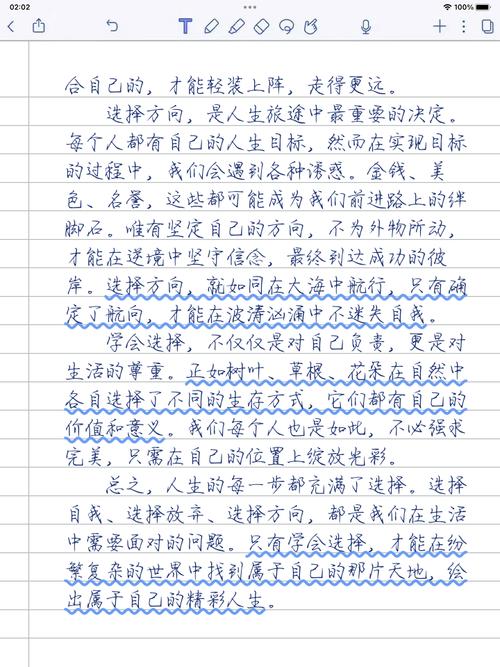 02:02
100%
合自己的，才能轻装上阵，走得更远。
选择方向，是人生旅途中最重要的决定。
每个人都有自己的人生目标，然而在实现目标
的过程中，我们会遇到各种诱惑。金钱、美
色、名誉，这些都可能成为我们前进路上的绊
脚石。唯有坚定自己的方向，不为外物所动，
才能在逆境中坚守信念，最终到达成功的彼
岸。选择方向，就如同在大海中航行，只有确
定了航向，才能在波涛汹涌中不迷失自我。
学会选择，不仅仅是对自己负责，更是对
生活的尊重。正如树叶、草根、花朵在自然中
各自选择了不同的生存方式，它们都有自己的
价值和意义。我们每个人也是如此，不必强求
完美，只需在自己的位置上绽放光彩。
总之，人生的每一步都充满了选择。选择
自我、选择放弃、选择方向，都是我们在生活
中需要面对的问题。只有学会选择，才能在纷
繁复杂的世界中找到属于自己的那片天地，绘
出属于自己的精彩人生。